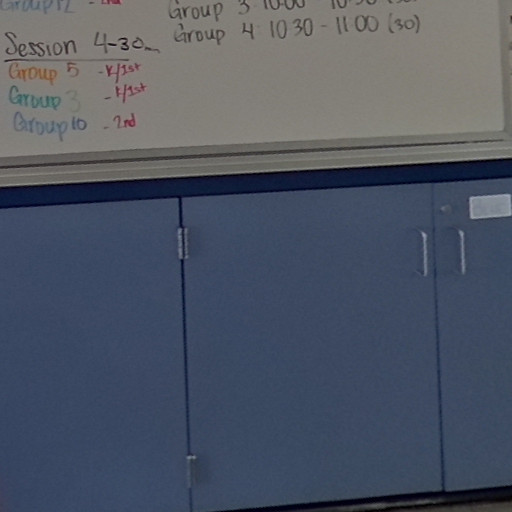 Group 12 - 2nd
Session 4-30m
Group 5 - K/1st
Group 3 - K/1st
Group 10 - 2nd
Group 3 10:00
Group 4 10:30 - 11:00 (30)